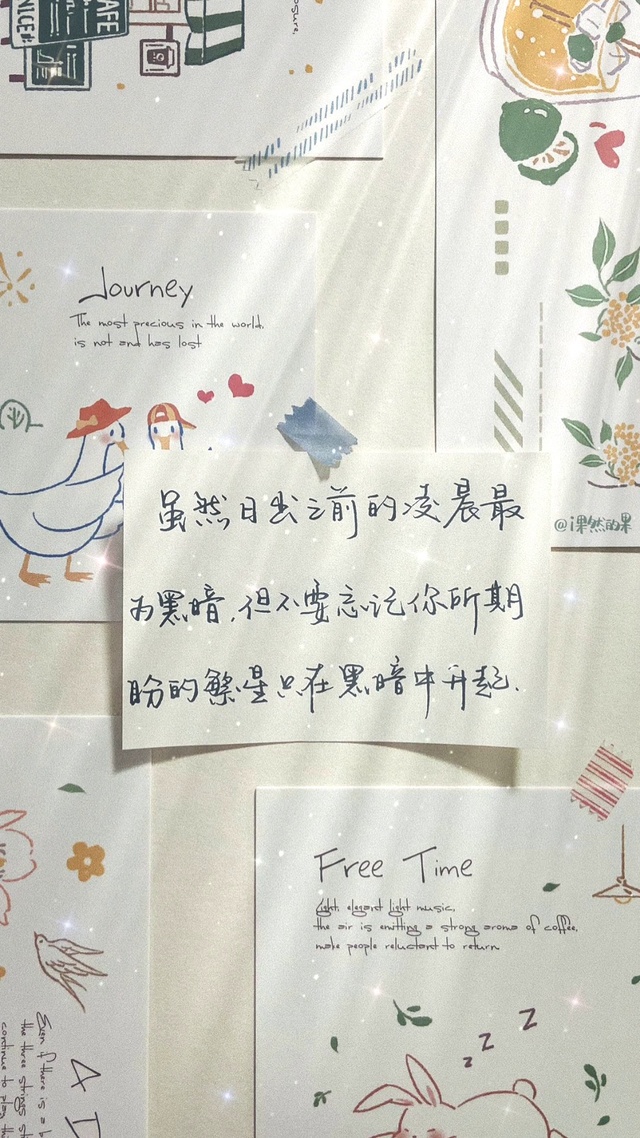 CAFE
NICE
osure.
Journey
The most precious in the world,
is not and has lost
@i果然的果
虽然日出之前的凌晨最
为黑暗,但不要忘记你所期
盼的繁星只在黑暗中升起.
Free Time
Light, elegant light music,
the air is emitting a strong aroma of coffee,
make people reluctant to return
z z Z
A D
Even if there is a b
the three strings st
continue to play the